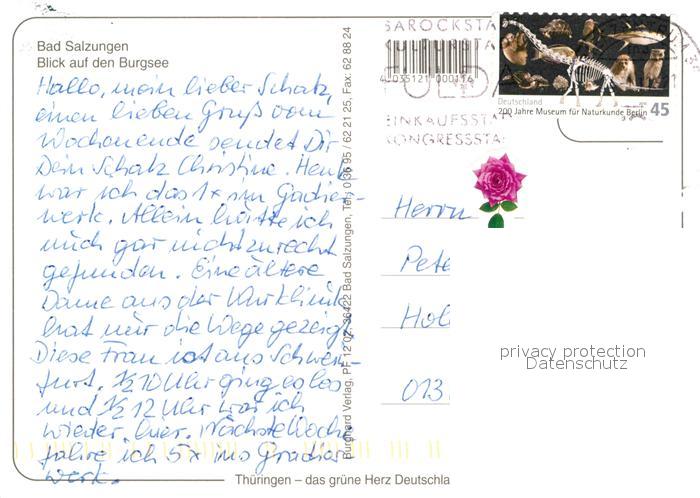 Bad Salzungen
Blick auf den Burgsee
Hallo, mein lieber Schatz,
einen lieben Gruß vom
Wochenende sendet Dir
Dein Schatz Christine. Heute
war ich das 1x im Gradier-
werk. Allein hätte ich
mich gar nicht zurecht
gefunden. Eine ältere
Dame aus der Kurklinik
hat mir die Wege gezeigt.
Diese Frau ist aus Schwein-
furt. ½ 10 Uhr ging es los
und ½ 12 Uhr war ich
wieder hier. Nächste Woche
fahre ich 5x ins Gradier-
werk.
Burghard Verlag, PF 12 02, 36422 Bad Salzungen, Tel. 0 36 95 / 62 21 25, Fax: 62 88 24
BAROCKSTA
KULTURSTA
4 035121 000116
FULDA
EINKAUFSSTA
KONGRESSSTA
Deutschland
200 Jahre Museum für Naturkunde Berlin
45
Herrn
Pete
Hol
013
privacy protection
Datenschutz
Thüringen – das grüne Herz Deutschla